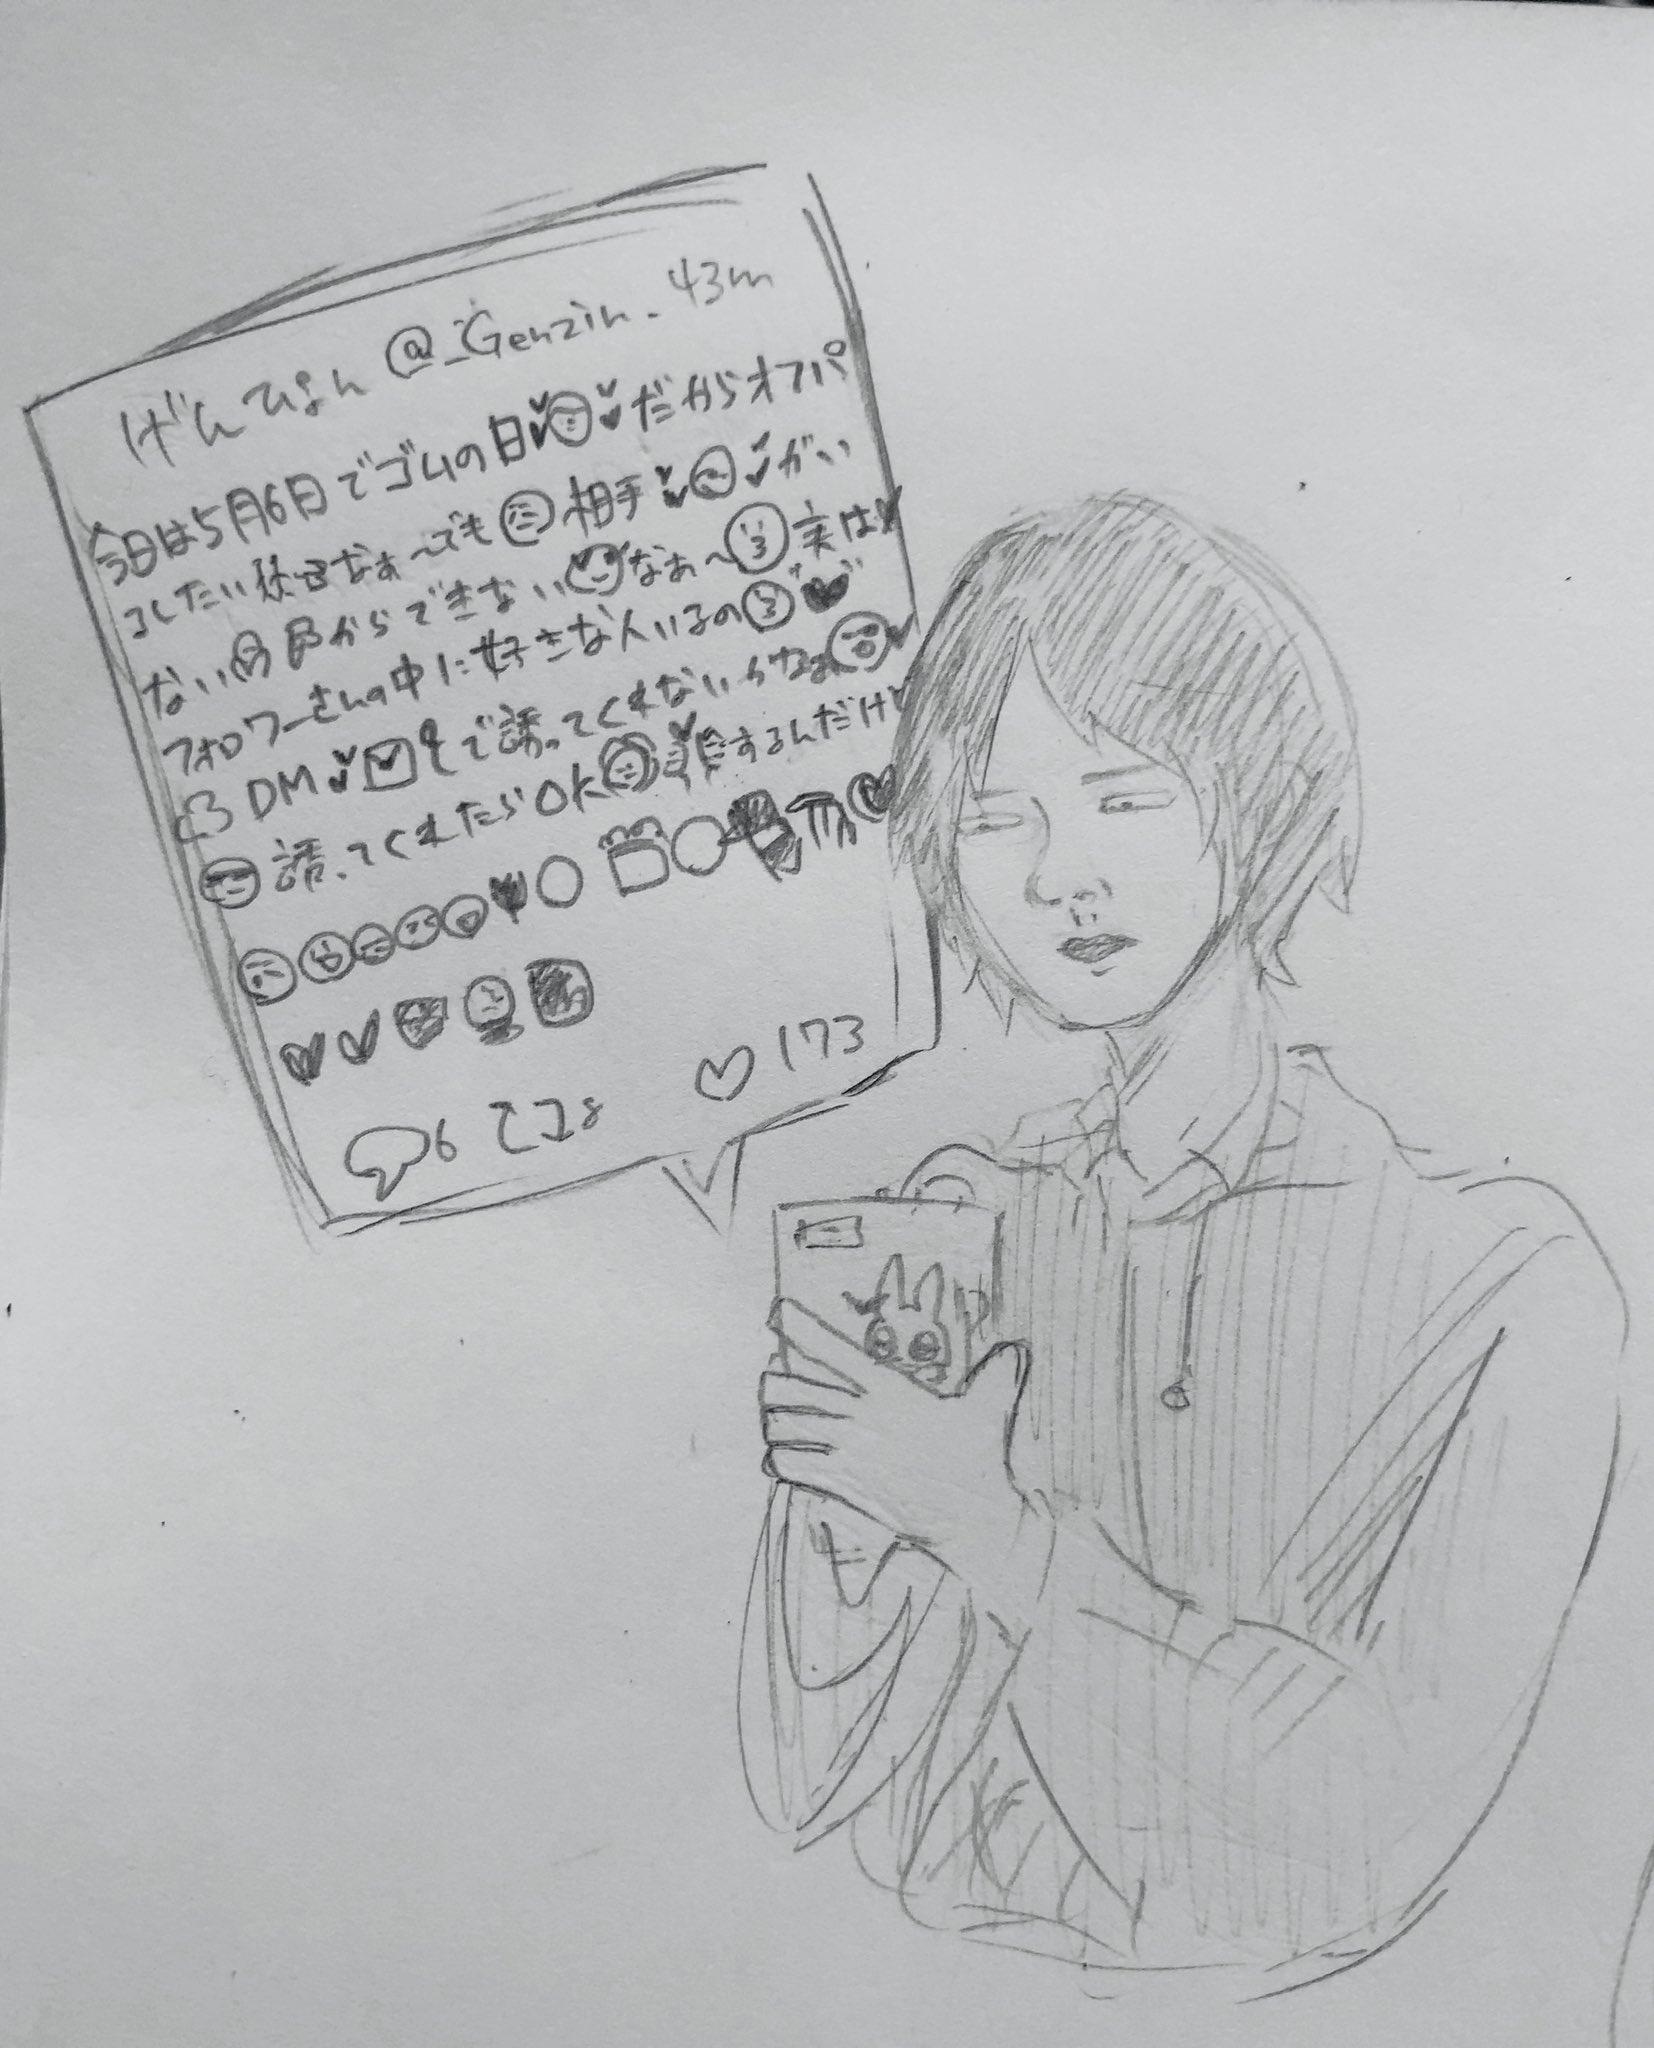 げんぴょん @_Genzin_ 43m
今日は5月6日でゴムの日だからオフパ
コしたい気分なぁ〜でも相手がい
ないからできないなぁ〜実は
フォロワーさんの中に好きな人いるの
DMで誘ってくれないかなぁ
誘ってくれたらOKするんだけど
6 28 173